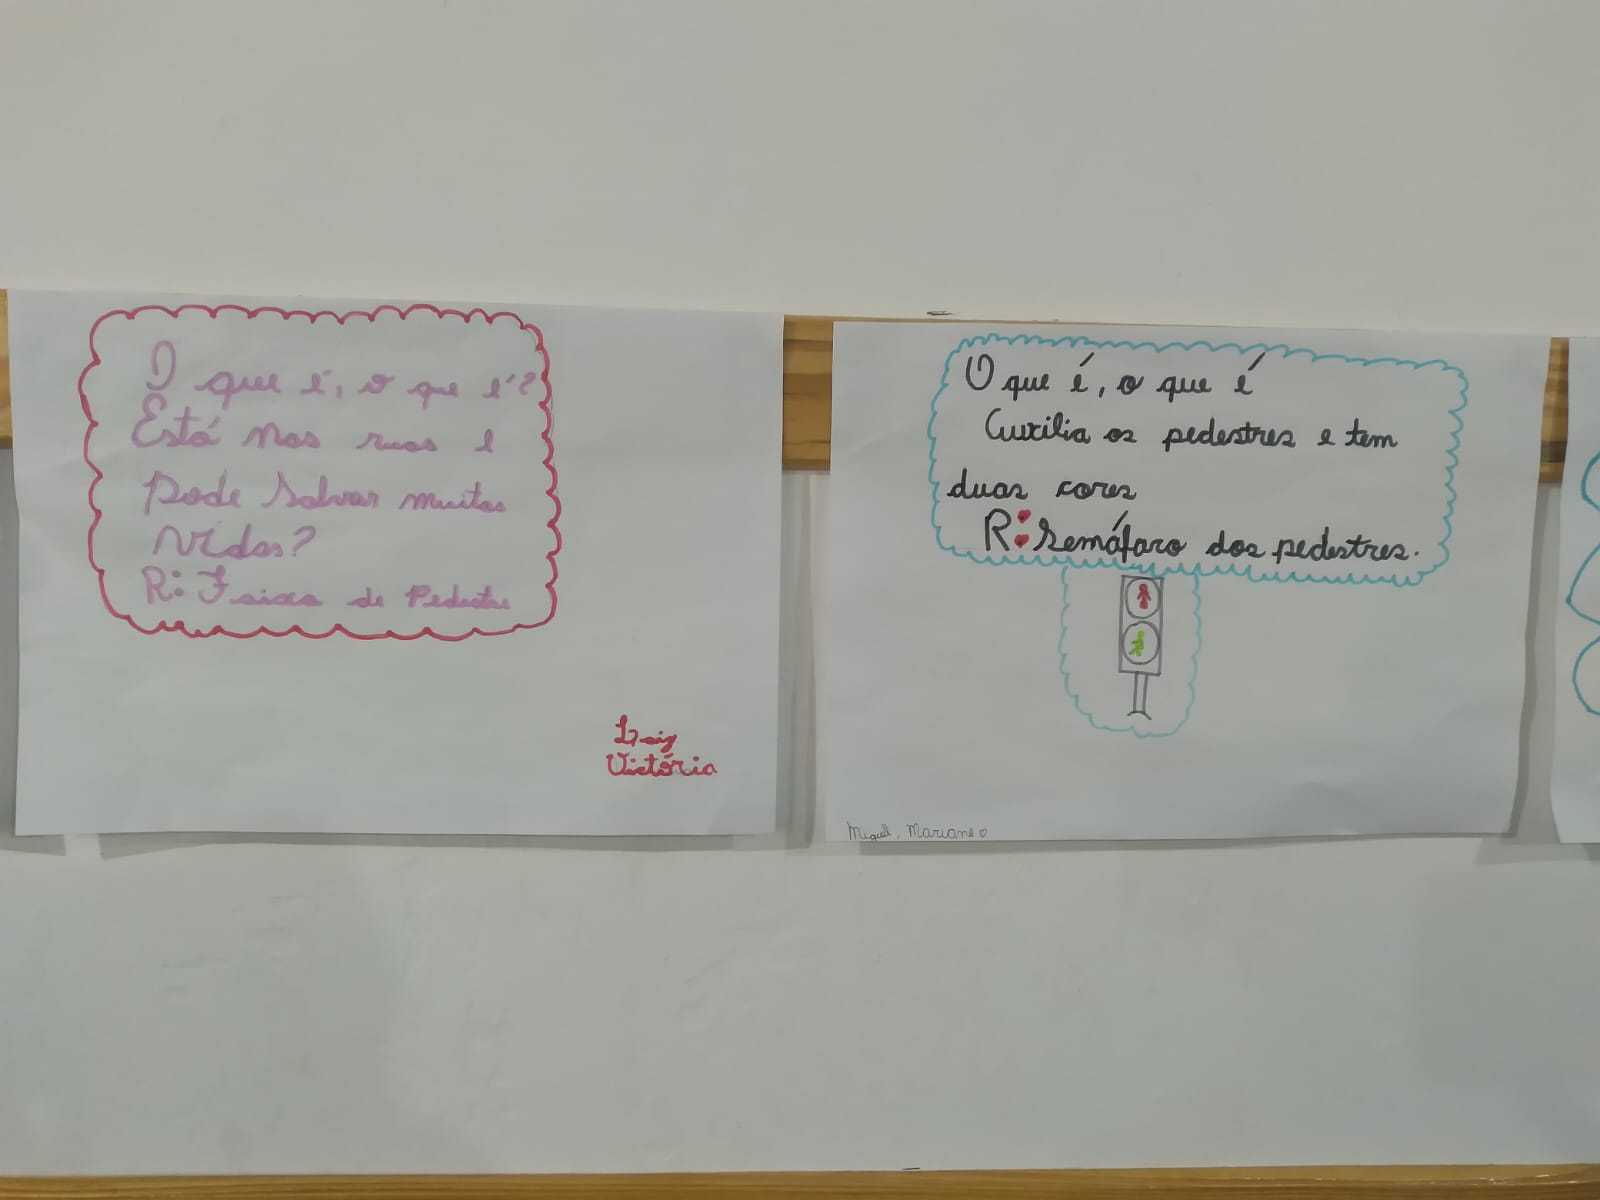 O que é, o que é?
Está nas ruas e
pode salvar muitas
vidas?
R: Faixa de Pedestre
Laiz
Victória
O que é, o que é
Auxilia os pedestres e tem
duas cores
R: Semáfaro dos pedestres.
Miguel, Mariane